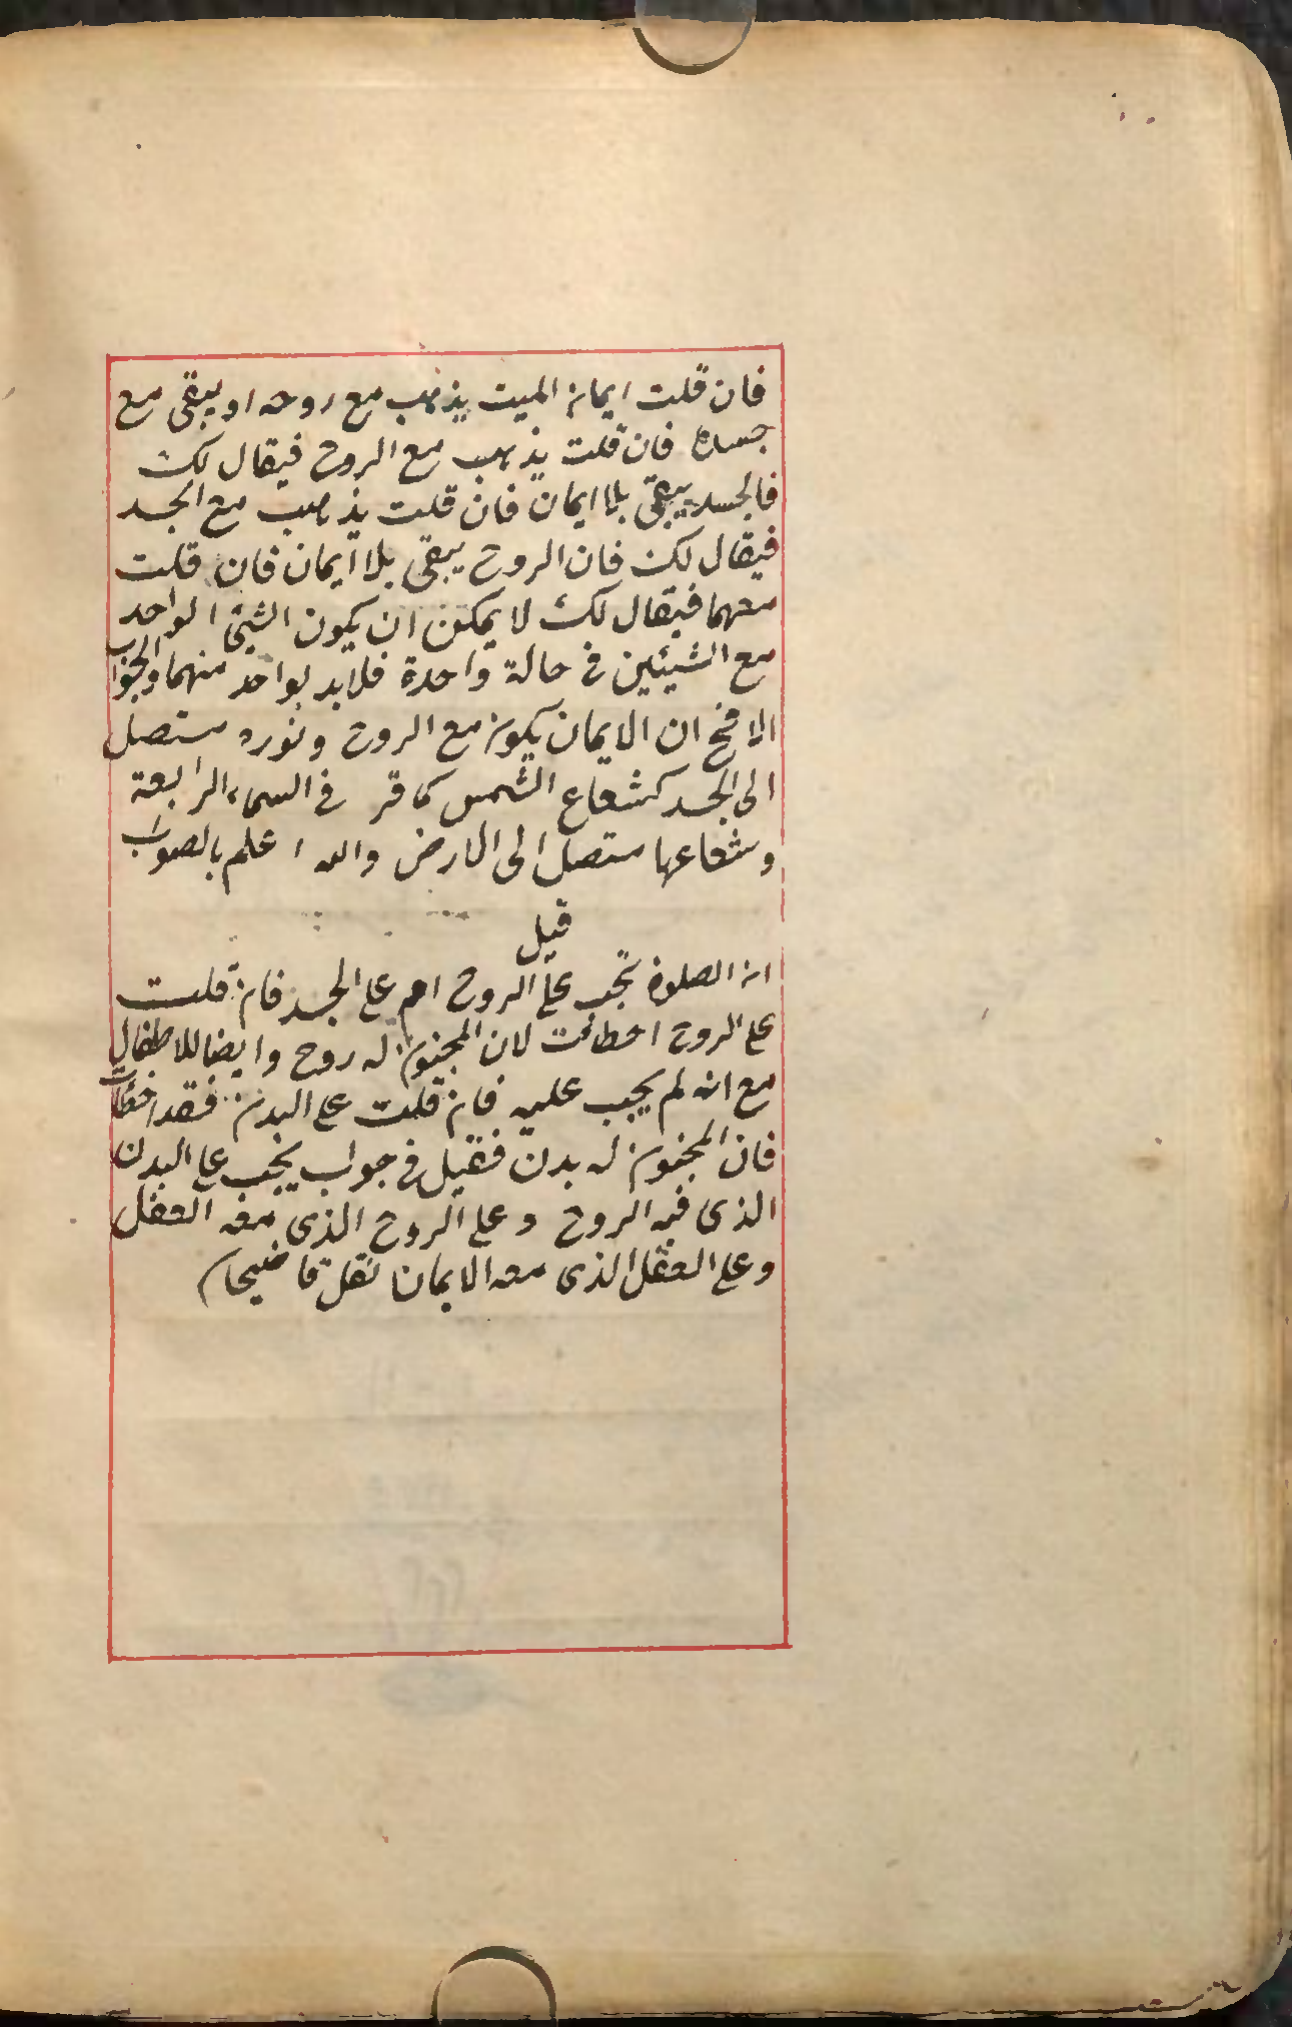 فان قلت ايمان الميت يذهب مع روحه او يبقى مع
جسده فان قلت يذهب مع الروح فيقال لك
فالجسد يبقى بلا ايمان فان قلت يذهب مع الجسد
فيقال لك فان الروح يبقى بلا ايمان فان قلت
معهما فيقال لك لا يمكن ان يكون الشئ الواحد
مع الشيئين فى حالة واحدة فلابد بواحد منهما والجواب
ان الايمان يكون مع الروح ونوره متصل
الى الجسد كشعاع الشمس فى السماء الرابعة
وشعاعها متصل الى الارض والله اعلم بالصواب
قيل
ان الصلوة تجب على الروح ام على الجسد فان قلت
على الروح اخطائت لان المجنون له روح وايضا للاطفال
مع انه لم يجب عليه فان قلت على البدن فقد اخطأت
فان المجنون له بدن فقيل فى جواب يجب على البدن
الذى فيه الروح وعلى الروح الذى معه العقل
وعلى العقل الذى معه الايمان نقل